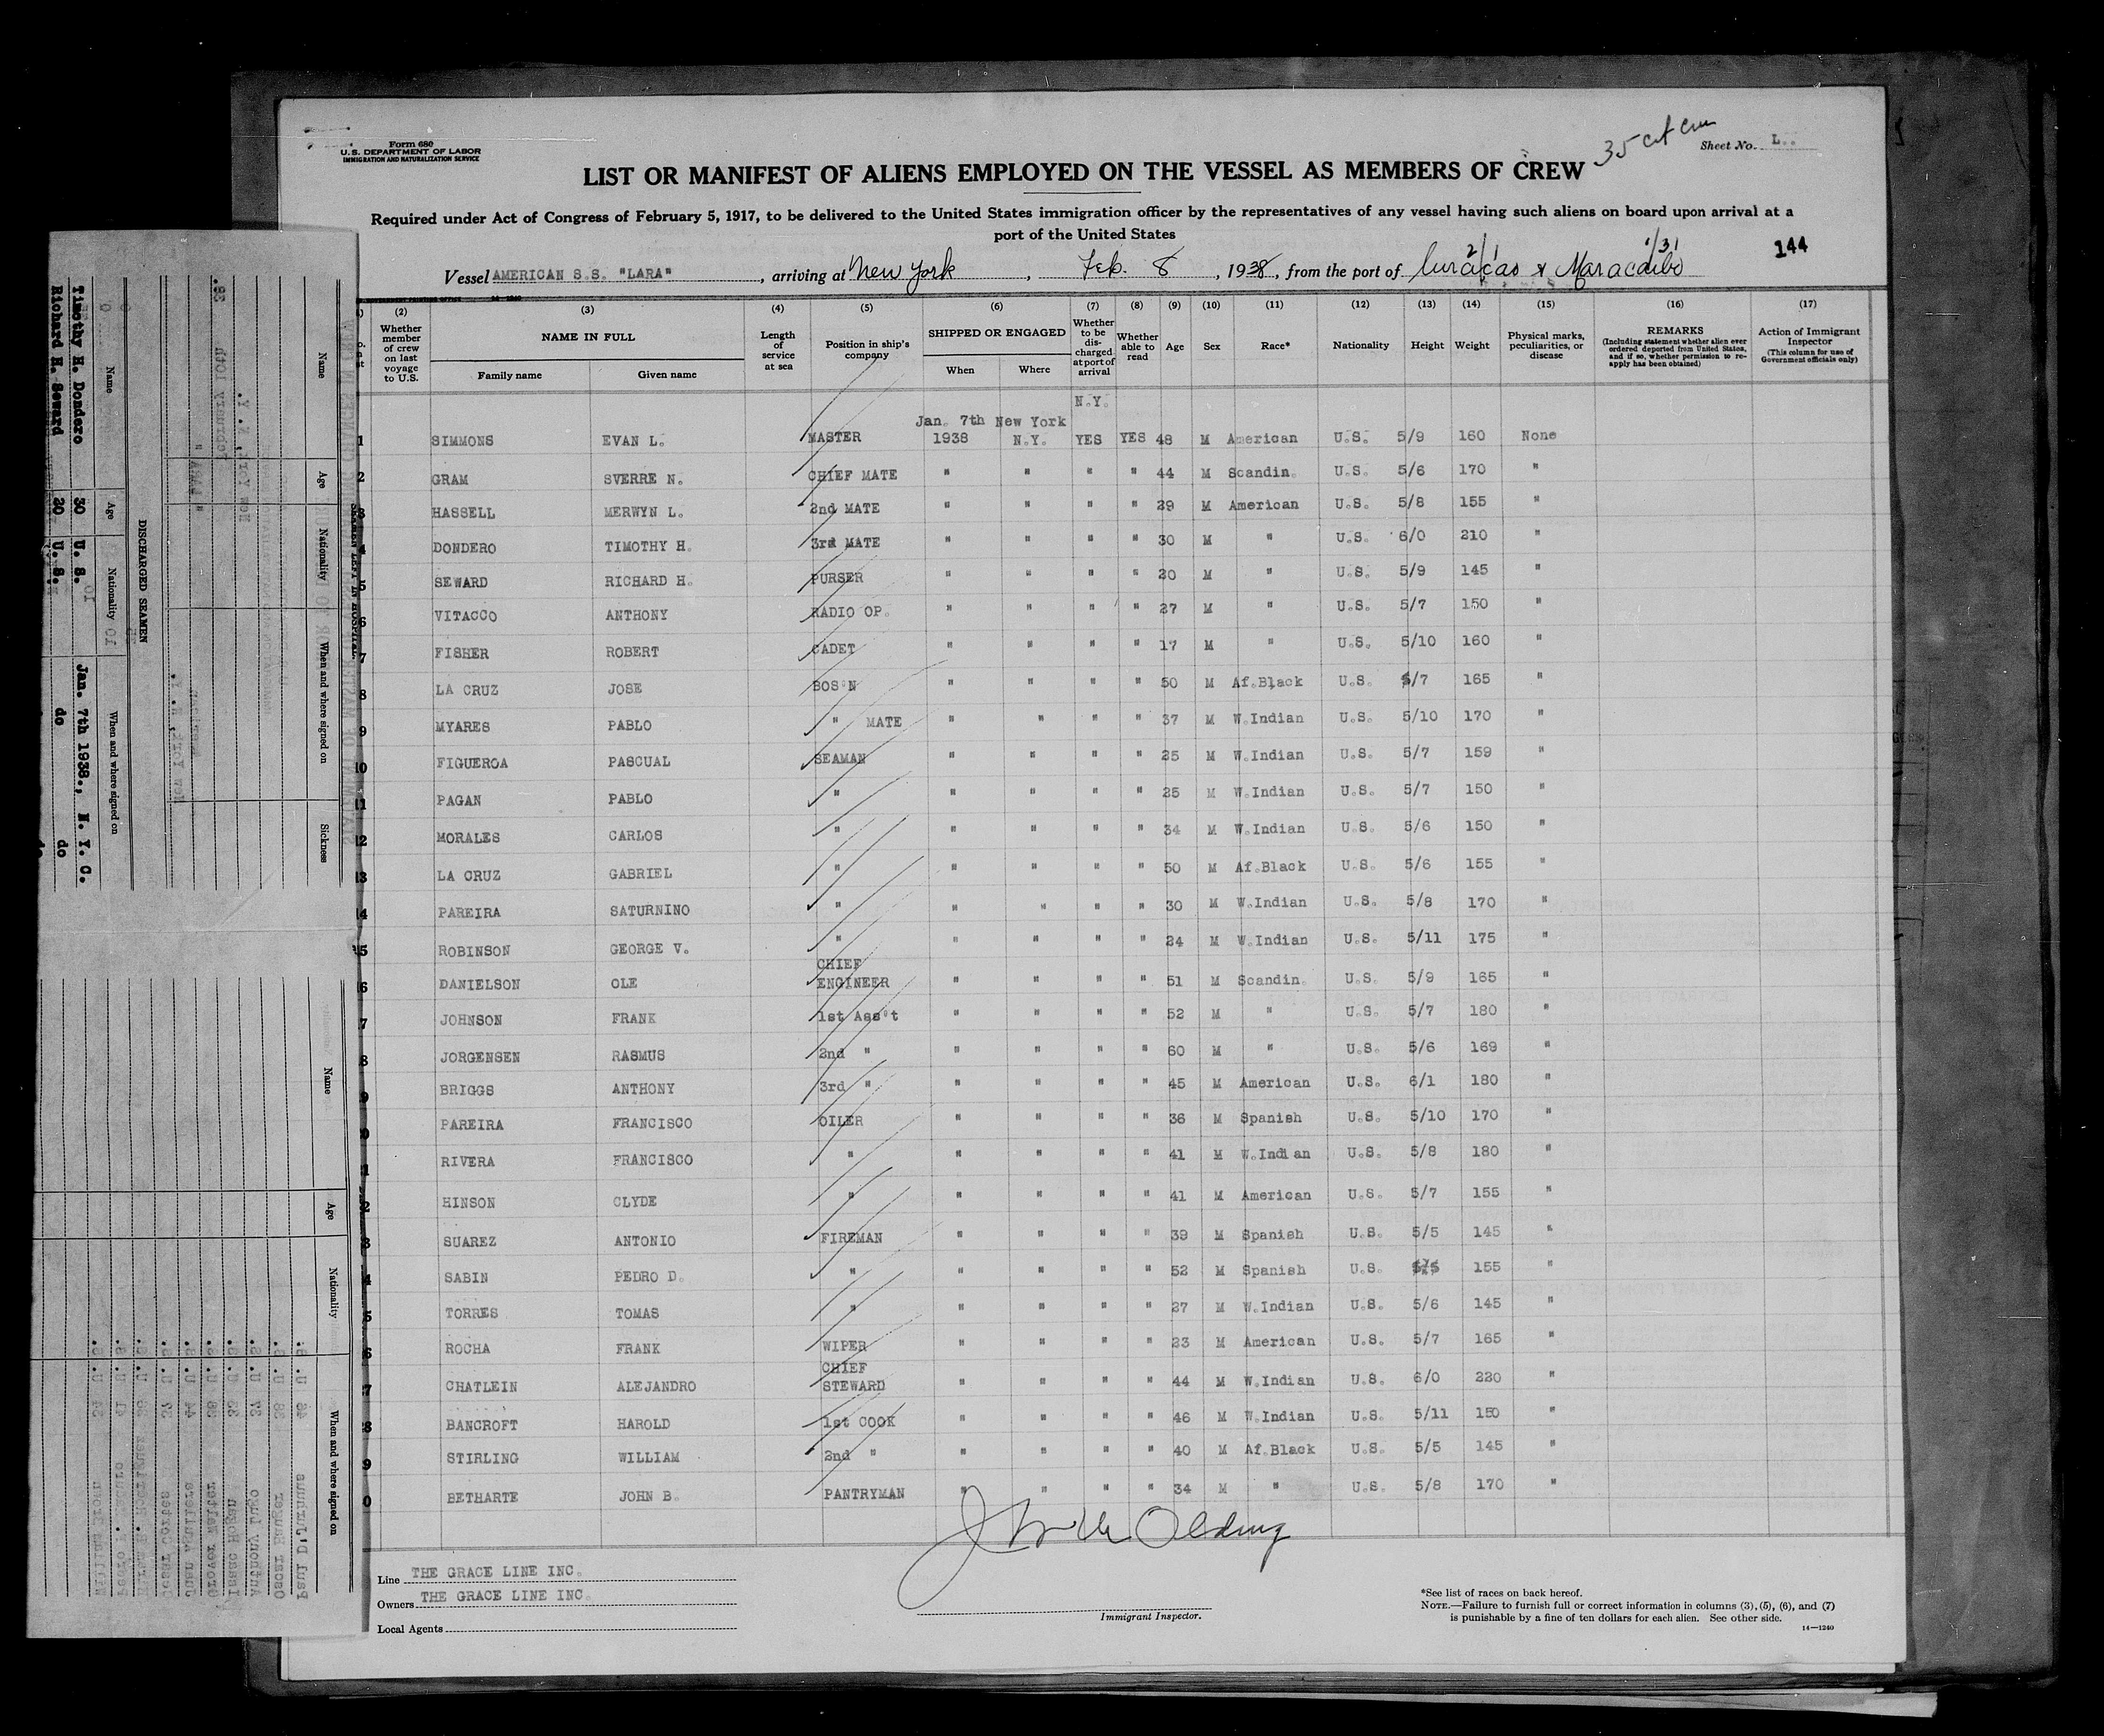 Form 680
U.S. DEPARTMENT OF LABOR
IMMIGRATION AND NATURALIZATION SERVICE
35
Sheet No. L..
LIST OR MANIFEST OF ALIENS EMPLOYED ON THE VESSEL AS MEMBERS OF CREW
Required under Act of Congress of February 5, 1917, to be delivered to the United States immigration officer by the representatives of any vessel having such aliens on board upon arrival at a
port of the United States
2/1 1/31
144
Vessel AMERICAN S.S. "LARA", arriving at New York, Feb. 8, 1938, from the port of Curacao & Maracaibo
(2) (3) (4) (5) (6) (7) (8) (9) (10) (11) (12) (13) (14) (15) (16) (17)
Whether member of crew on last voyage to U.S.
NAME IN FULL
Family name Given name
Length of service at sea
Position in ship's company
SHIPPED OR ENGAGED
When Where
Whether to be discharged at port of arrival
Whether able to read
Age
Sex
Race*
Nationality
Height
Weight
Physical marks, peculiarities, or disease
REMARKS
(Including statement whether alien ever ordered deported from United States, and if so, whether permission to reapply has been obtained)
Action of Immigrant Inspector
(This column for use of Government officials only)
N.Y.
Jan. 7th New York
1 SIMMONS EVAN L. MASTER 1938 N.Y. YES YES 48 M American U.S. 5/9 160 None
2 GRAM SVERRE N. CHIEF MATE " " " " 44 M Scandin. U.S. 5/6 170 "
3 HASSELL MERWYN L. 2nd MATE " " " " 29 M American U.S. 5/8 155 "
4 DONDERO TIMOTHY H. 3rd MATE " " " " 30 M " U.S. 6/0 210 "
5 SEWARD RICHARD H. PURSER " " " " 20 M " U.S. 5/9 145 "
6 VITACCO ANTHONY RADIO OP. " " " " 27 M " U.S. 5/7 150 "
7 FISHER ROBERT CADET " " " " 17 M " U.S. 5/10 160 "
8 LA CRUZ JOSE BOS'N " " " " 50 M Af.Black U.S. 5/7 165 "
9 MYARES PABLO " MATE " " " " 37 M W.Indian U.S. 5/10 170 "
10 FIGUEROA PASCUAL SEAMAN " " " " 25 M W.Indian U.S. 5/7 159 "
11 PAGAN PABLO " " " " " 25 M W.Indian U.S. 5/7 150 "
12 MORALES CARLOS " " " " " 34 M W.Indian U.S. 5/6 150 "
13 LA CRUZ GABRIEL " " " " " 50 M Af.Black U.S. 5/6 155 "
14 PAREIRA SATURNINO " " " " " 30 M W.Indian U.S. 5/8 170 "
15 ROBINSON GEORGE V. " " " " " 24 M W.Indian U.S. 5/11 175 "
CHIEF
6 DANIELSON OLE ENGINEER " " " " 51 M Scandin. U.S. 5/9 165 "
7 JOHNSON FRANK 1st Ass't " " " " 52 M " U.S. 5/7 180 "
8 JORGENSEN RASMUS 2nd " " " " " 60 M " U.S. 5/6 169 "
9 BRIGGS ANTHONY 3rd " " " " " 45 M American U.S. 6/1 180 "
0 PAREIRA FRANCISCO OILER " " " " 36 M Spanish U.S. 5/10 170 "
1 RIVERA FRANCISCO " " " " " 41 M W.Indian U.S. 5/8 180 "
2 HINSON CLYDE " " " " " 41 M American U.S. 5/7 155 "
3 SUAREZ ANTONIO FIREMAN " " " " 39 M Spanish U.S. 5/5 145 "
4 SABIN PEDRO D. " " " " " 52 M Spanish U.S. 155 "
5 TORRES TOMAS " " " " " 27 M W.Indian U.S. 5/6 145 "
6 ROCHA FRANK WIPER " " " " 23 M American U.S. 5/7 165 "
CHIEF
7 CHATLEIN ALEJANDRO STEWARD " " " " 44 M W.Indian U.S. 6/0 220 "
8 BANCROFT HAROLD 1st COOK " " " " 46 M W.Indian U.S. 5/11 150 "
9 STIRLING WILLIAM 2nd " " " " " 40 M Af.Black U.S. 5/5 145 "
0 BETHARTE JOHN B. PANTRYMAN " " " " 34 M " U.S. 5/8 170 "
Line THE GRACE LINE INC.
Owners THE GRACE LINE INC.
Local Agents
Immigrant Inspector.
*See list of races on back hereof.
NOTE.—Failure to furnish full or correct information in columns (3), (5), (6), and (7)
is punishable by a fine of ten dollars for each alien. See other side.
14—1240
Name Age Nationality When and where signed on Sickness
DISCHARGED SEAMEN
Name Age Nationality When and where signed on
Timothy H. Dondero 30 U. S. Jan. 7th 1938., N. Y. C.
Richard H. Seward 20 U. S. do do
Name Age Nationality When and where signed on